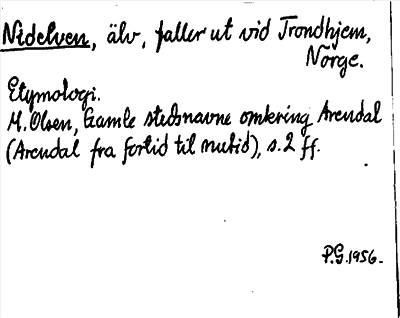 Nidelven, älv, faller ut vid Trondhjem,
Norge.
Etymologi.
M. Olsen, Gamle stedsnavne omkring Arendal
(Arendal fra fortid til nutid), s. 2 ff.
P.G. 1956.